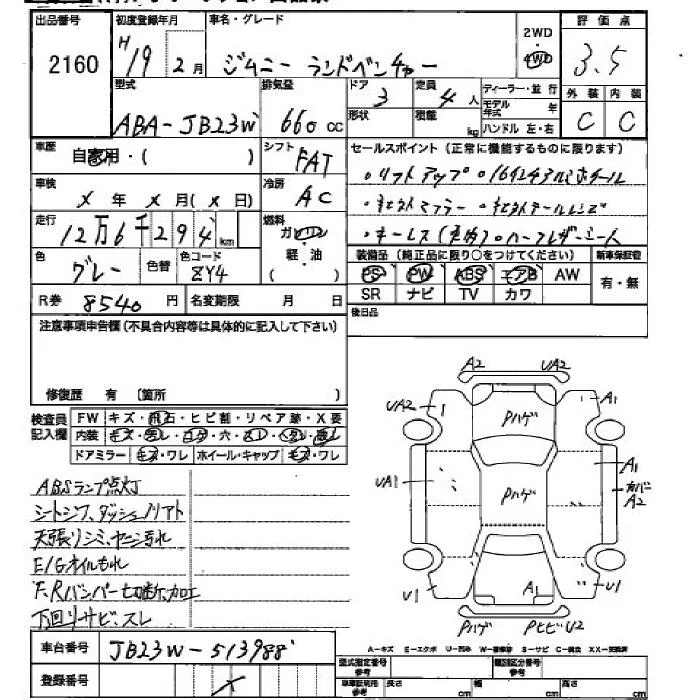 出品番号 初度登録年月 車名・グレード 2WD 評価点
2160 H19年2月 ジムニー ランドベンチャー 4WD 3.5
型式 排気量 ドア 定員 ディーラー・並行 外装 内装
ABA-JB23W 660cc 3 4人 モデル年式 年 C C
形状 積載 kg ハンドル 左・右
車歴 自家用・( ) シフト FAT セールスポイント(正常に機能するものに限ります)
車検 X年X月(X日) 冷房 AC ・リフトアップ ・16インチアルミホイール
走行 12万6千294km 燃料 ガソリン ・社外マフラー ・社外テールレンズ
軽・油 ・キーレス(社外)・ハーフレザーシート
色 グレー 色替 色コード ZY4 装備品(純正品に限り○をつけてください) 新車保証書
PS PW ABS エアB AW 有・無
R券 8540円 名変期限 月 日 SR ナビ TV カワ
注意事項申告欄(不具合内容等は具体的に記入して下さい) 後日品
修復歴 有 〔箇所 〕
A2 UA2
UA2 A1
Pハゲ
検査員記入欄 FW キズ・飛石・ヒビ割・リペア跡・X要
内装
ドアミラー キズ・ワレ ホイール・キャップ キズ・ワレ
UA1 A1
カバーA2
Pハゲ
ABSランプ点灯
シートシワ、ダッシュノリアト
天張リシミ、ヤニ汚れ
E/Gオイルもれ
F,Rバンパー切断、加工
下回りサビ、スレ
U1 A1 U1
Pハゲ PヒビU2
A-キズ E-エクボ U-凹み W-補修跡 S-サビ C-腐食 XX-交換済
車台番号 JB23W-513988
登録番号 X
型式指定番号 参考 類別区分番号 参考
車車証明用 参考 長さ cm 幅 cm 高さ cm